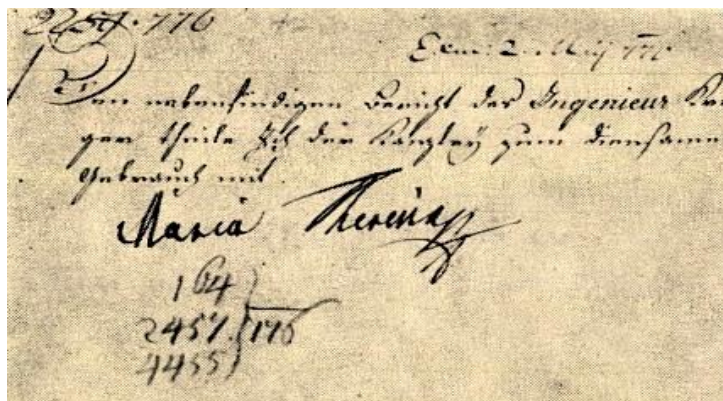 2257.776
Den nebenfindigen Bericht des Ingenieur Kri
ger theile Ich der Kanzley zum diensamen
Gebrauch mit.
Maria Theresia
164
2457. 776
4455